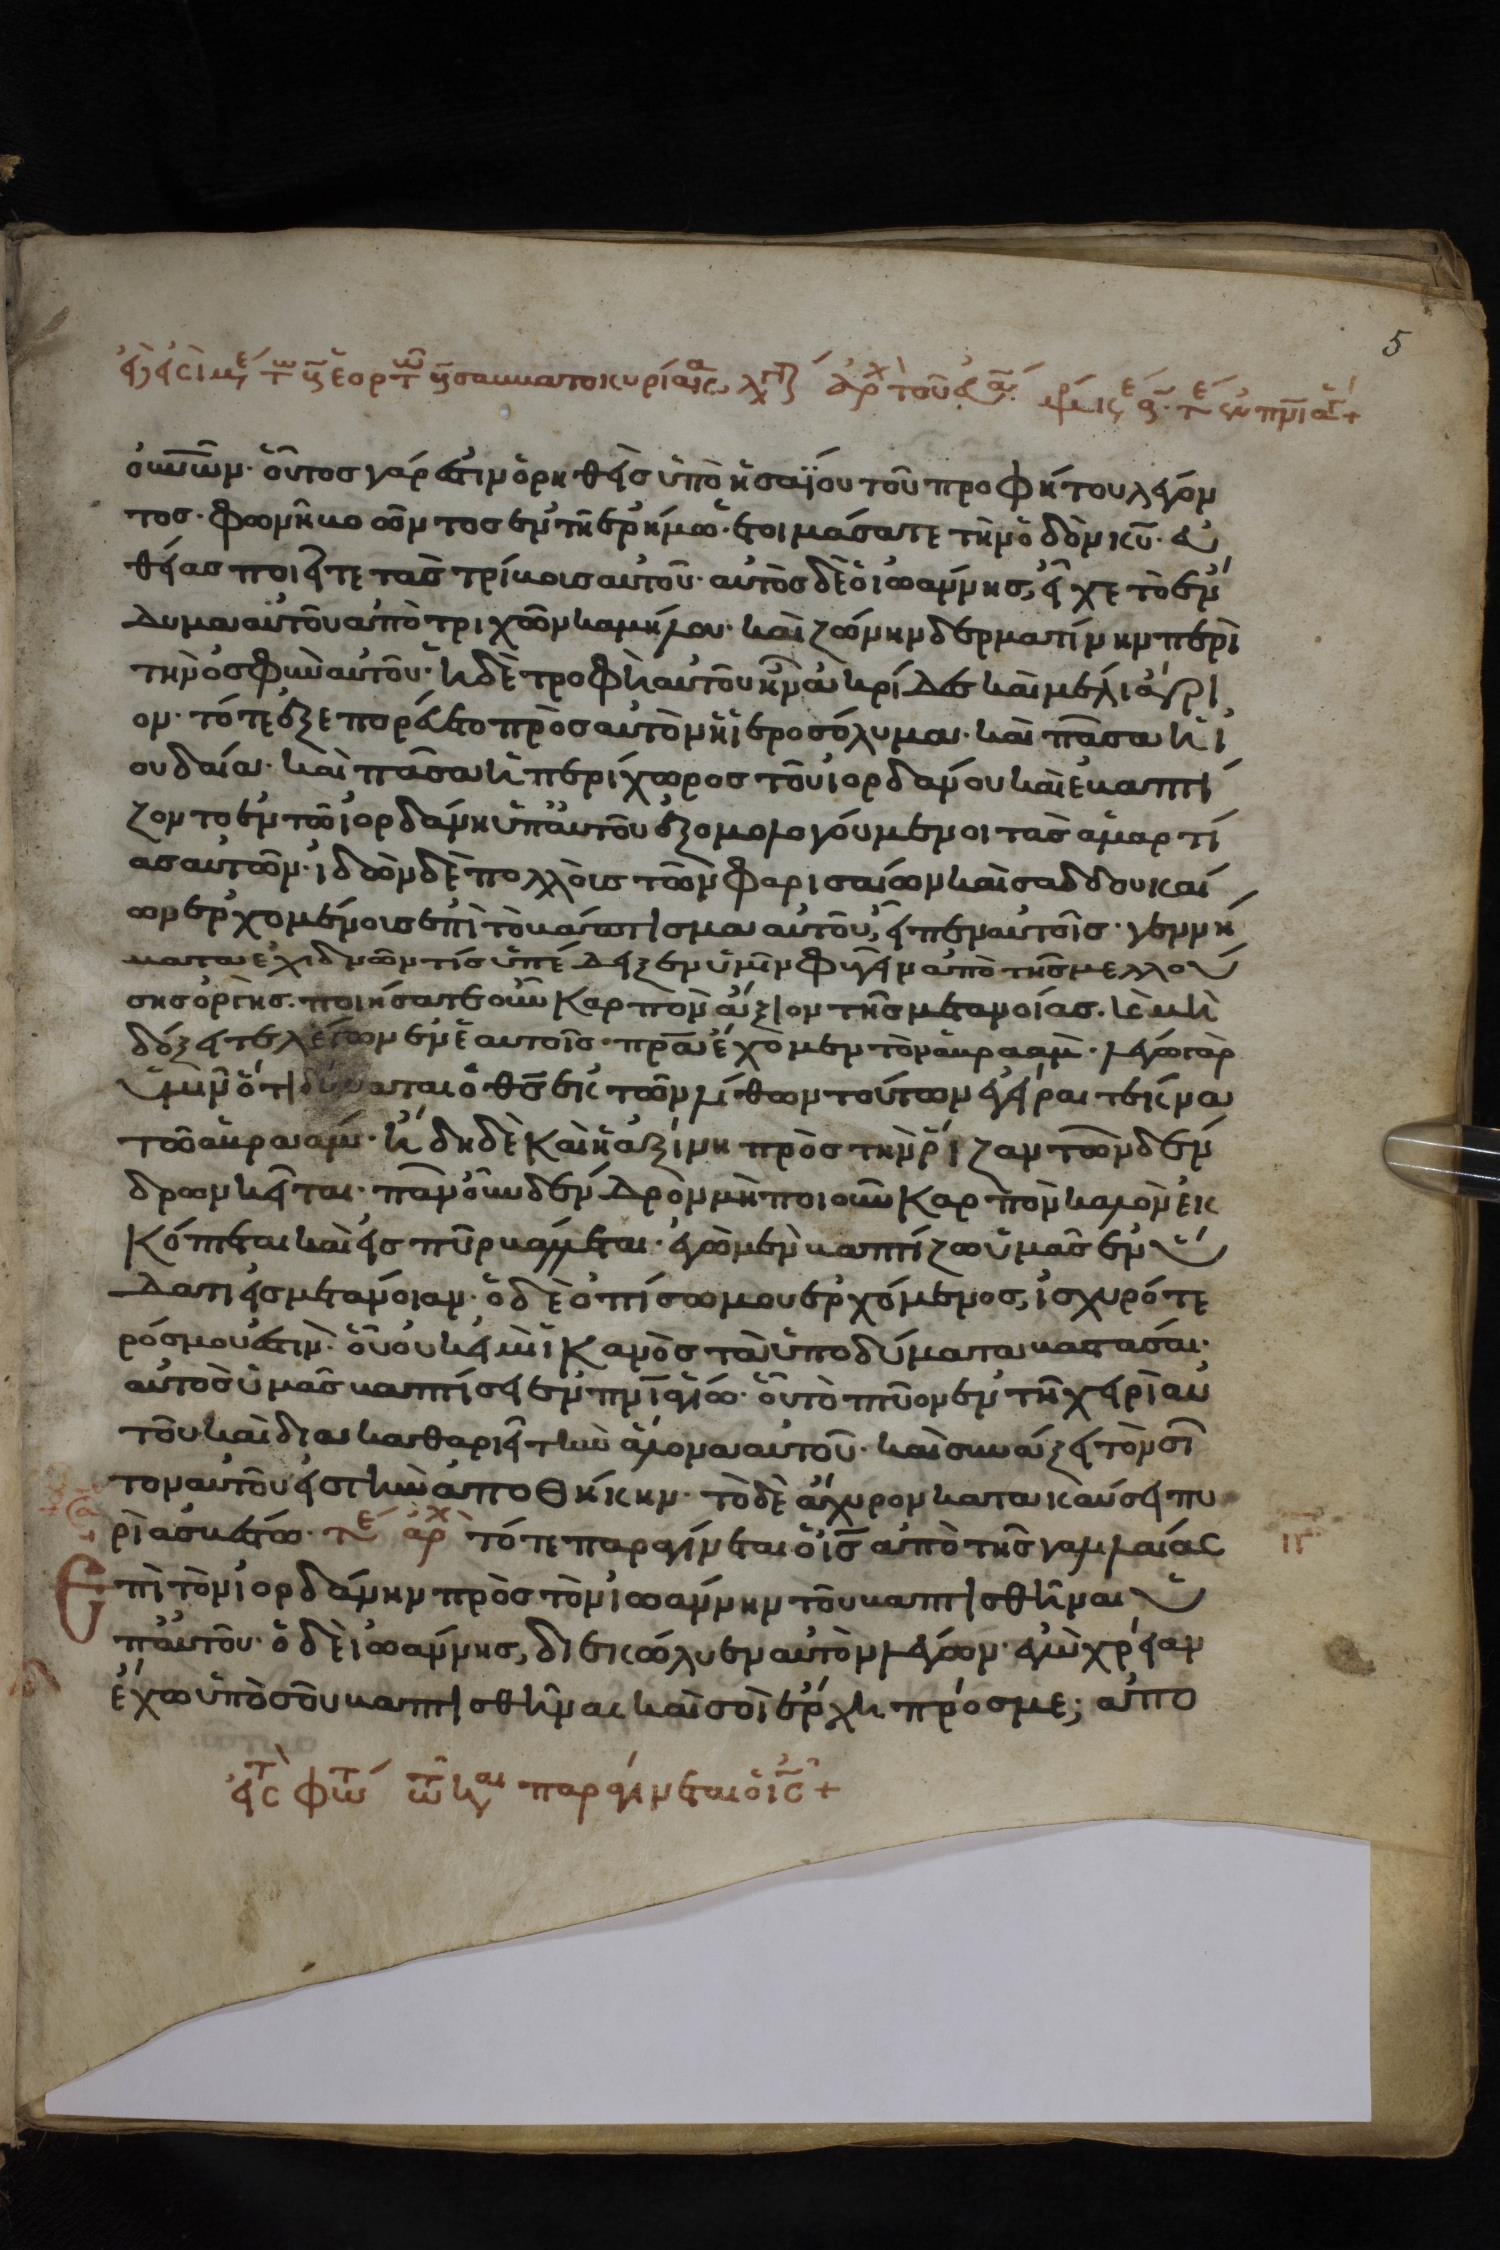 οὐνῶν· οὗτος γάρ ἐστιν ὁ ρηθεὶς ὑπὸ ἡσαΐου τοῦ προφήτου λέγον
τος· φωνὴ βοῶντος ἐν τῆ ἐρήμω· ἑτοιμάσατε τὴν ὁδὸν κυ̅· εὐ
θείας ποιεῖτε τὰς τρίβους αὐτοῦ· αὐτὸς δὲ ὁ ἰωάννης, εἶχε τὸ ἔν
δυμα αὐτοῦ ἀπὸ τριχῶν καμήλου· καὶ ζώνην δερματίνην περὶ
τὴν ὀσφὺν αὐτοῦ· ἡ δὲ τροφὴ αὐτοῦ ἦν ἀκρίδες καὶ μέλι ἄγρι
ον· τότε ἐξεπορεύετο πρὸς αὐτὸν ἡ ἱεροσόλυμα· καὶ πᾶσα ἡ ἰ
ουδαία· καὶ πᾶσα ἡ περίχωρος τοῦ ἰορδάνου καὶ ἐβαπτί
ζοντο ἐν τῶ ἰορδάνη ὑπ' αὐτοῦ ἐξομολογούμενοι τὰς ἁμαρτί
ας αὐτῶν· ἰδὼν δὲ πολλοὺς τῶν φαρισαίων καὶ σαδδουκαί
ων ἐρχομένους ἐπὶ τὸ βάπτισμα αὐτοῦ, εἶπεν αὐτοῖς· γεννή
ματα ἐχιδνῶν τίς ὑπέδειξεν ὑμῖν φυγεῖν ἀπὸ τῆς μελλού
σης ὀργῆς· ποιήσατε οὖν καρπὸν ἄξιον τῆς μετανοίας. καὶ μὴ
δόξητε λέγειν ἐν ἑαυτοῖς· πρ̅α ἔχομεν τὸν ἀβραάμ· λέγω γὰρ
ὑμῖν ὅτι δύναται ὁ θς̅ ἐκ τῶν λίθων τούτων ἐγεῖραι τέκνα
τῶ ἀβραάμ· ἤδη δὲ καὶ ἡ ἀξίνη πρὸς τὴν ῥίζαν τῶν δέν
δρων κεῖται· πᾶν οὖν δένδρον μὴ ποιοῦν καρπὸν καλὸν ἐκ
κόπτεται καὶ εἰς πῦρ βάλλεται· ἐγὼ μὲν βαπτίζω ὑμᾶς ἐν ὕ
δατι εἰς μετάνοιαν· ὁ δὲ ὀπίσω μου ἐρχόμενος, ἰσχυρότε
ρός μου ἐστιν· οὗ οὐκ εἰμὶ ἱκανὸς τὰ ὑποδήματα βαστάσαι·
αὐτὸς ὑμᾶς βαπτίσει ἐν πνι̅ ἁγίω· οὗ τὸ πτύον ἐν τῆ χειρὶ αὐ
τοῦ καὶ διακαθαριεῖ τὴν ἅλωνα αὐτοῦ· καὶ συνάξει τὸν σῖ
τον αὐτοῦ εἰς τὴν ἀποθήκην· τὸ δὲ ἄχυρον κατακαύσει πυ
ρὶ ἀσβέστω· τε ἀρχ τότε παραγίνεται ὁ ις̅ ἀπὸ τῆς γαλιλαίας
Ἐπὶ τὸν ἰορδάνην πρὸς τὸν ἰωάννην τοῦ βαπτισθῆναι ὑ
π' αὐτοῦ· ὁ δὲ ἰωάννης, διεκώλυεν αὐτὸν λέγων· ἐγὼ χρείαν
ἔχω ὑπὸ σοῦ βαπτισθῆναι καὶ σὺ ἔρχη πρός με; ἀπο
εἰς τ φωτ παραγίνεται ὁ ις̅ +
5
ιγ